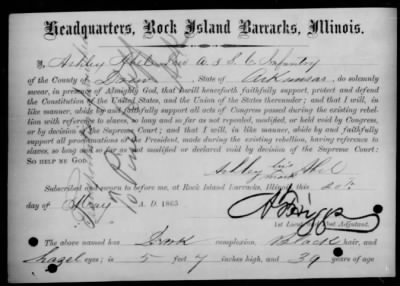 Headquarters, Rock Island Barracks, Illinois.
I, Ashley Abel
of the County of Drew State of Arkansas, do solemnly
swear, in presence of Almighty God, that I will henceforth faithfully support, protect and defend
the Constitution of the United States, and the Union of the States thereunder; and that I will, in
like manner, abide by and faithfully support all acts of Congress passed during the existing rebel-
lion with reference to slaves, so long and so far as not repealed, modified, or held void by Congress,
or by decision of the Supreme Court; and that I will, in like manner, abide by and faithfully
support all proclamations of the President, made during the existing rebellion, having reference to
slaves, so long and so far as not modified or declared void by decision of the Supreme Court:
SO HELP ME GOD.
Ashley his mark Abel
Subscribed and sworn to before me, at Rock Island Barracks, Illinois, this 20th
day of A. D. 1865
1st Lieut. Adjutant.
The above named has Dark complexion, Black hair, and
hazel eyes; is 5 feet 7 inches high, and 39 years of age